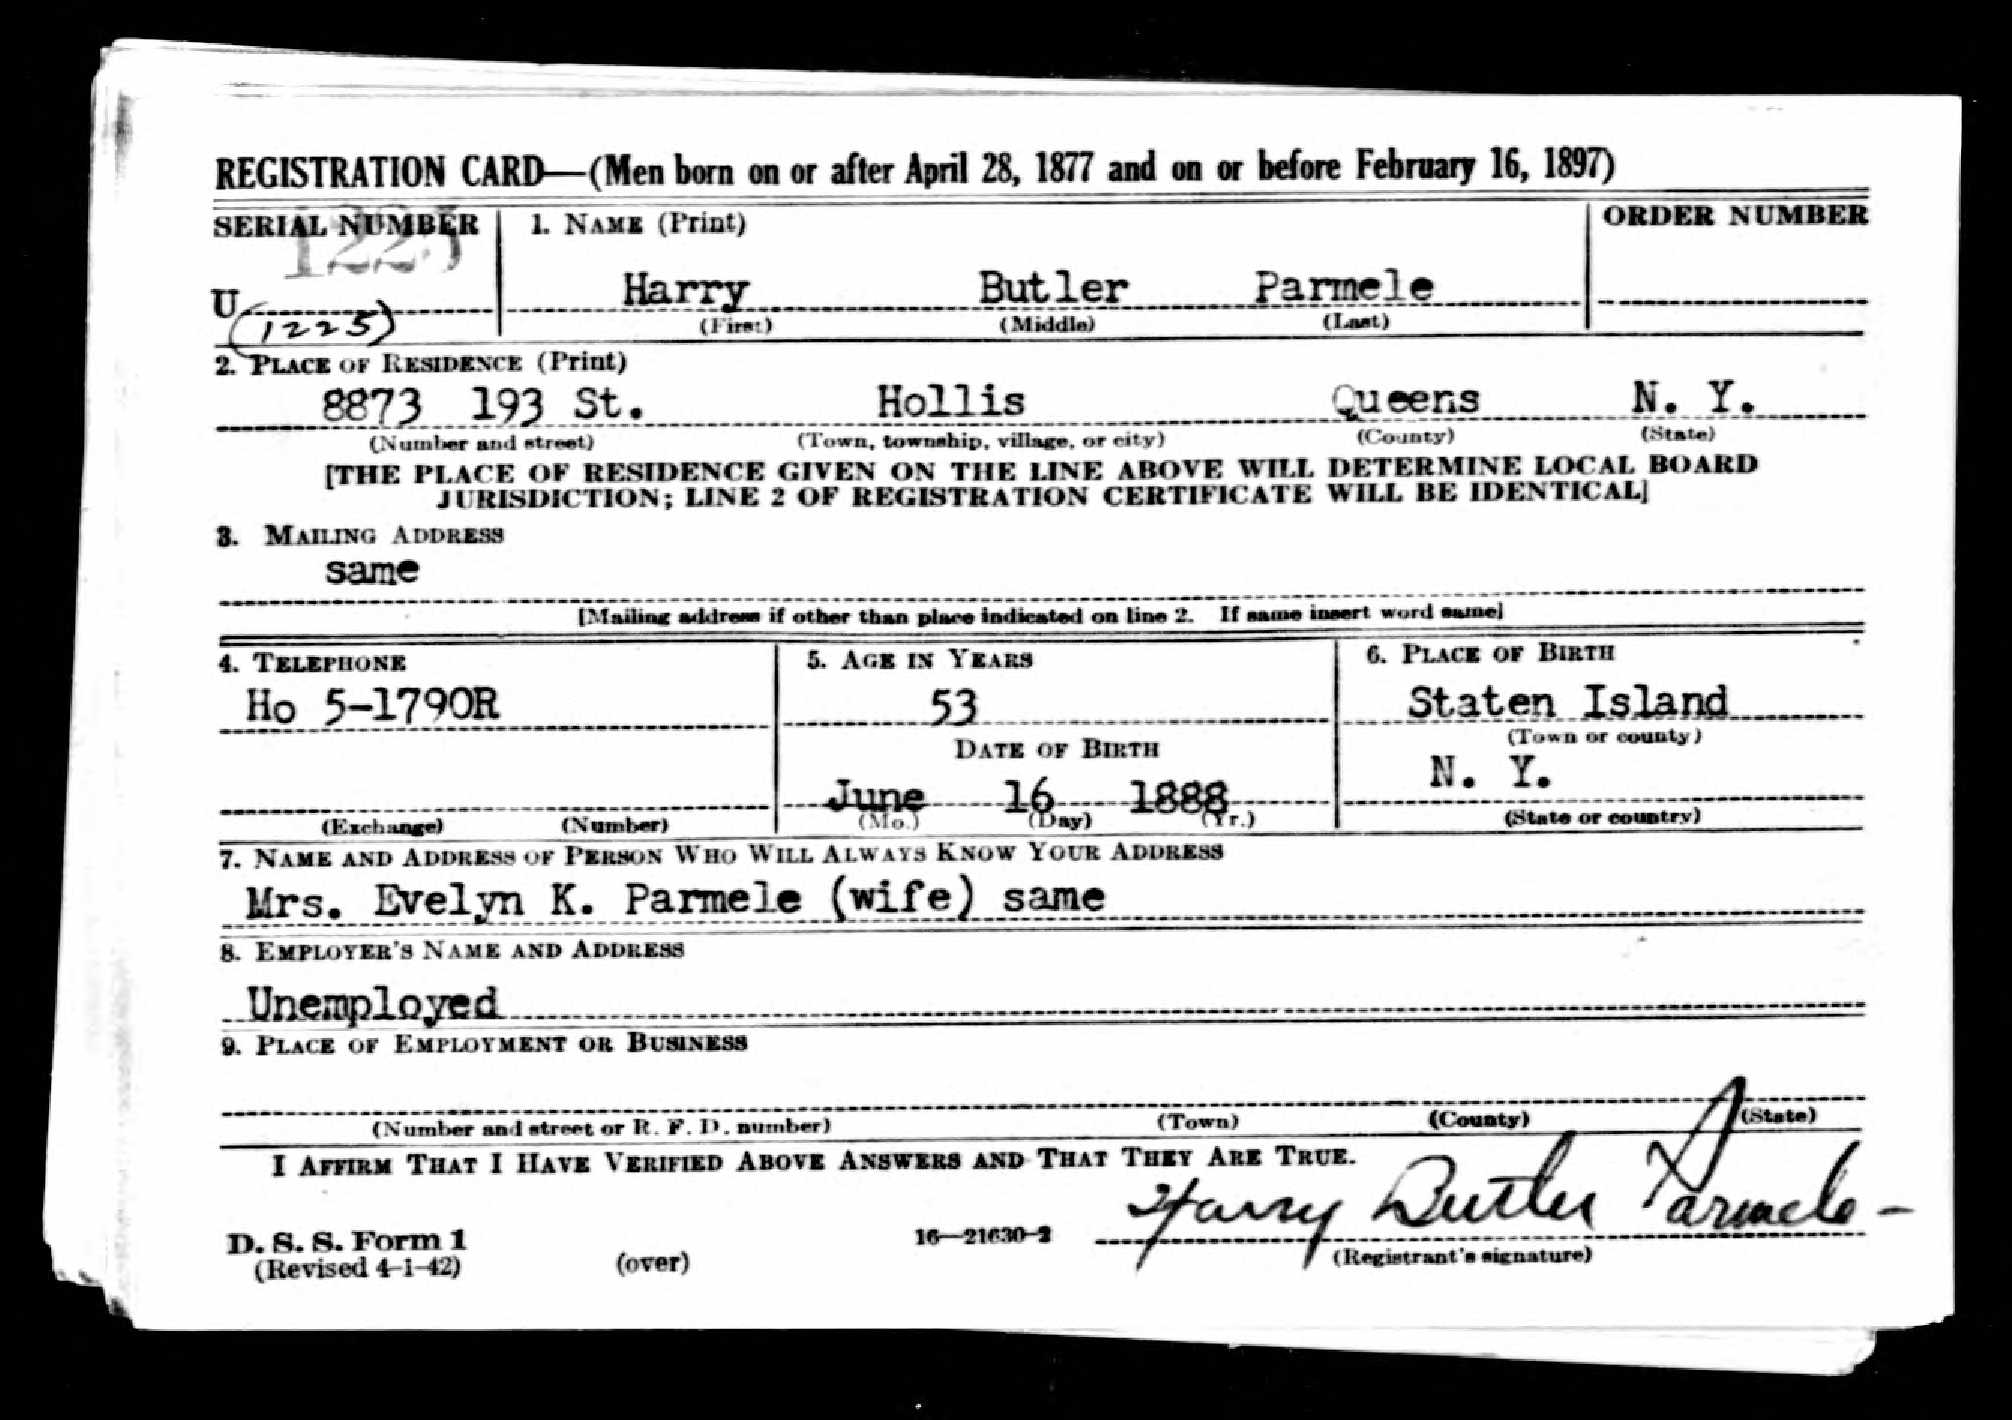 REGISTRATION CARD—(Men born on or after April 28, 1877 and on or before February 16, 1897)
SERIAL NUMBER 1. NAME (Print) ORDER NUMBER
1225
U Harry Butler Parmele
(1225) (First) (Middle) (Last)
2. PLACE OF RESIDENCE (Print)
8873 193 St. Hollis Queens N. Y.
(Number and street) (Town, township, village, or city) (County) (State)
[THE PLACE OF RESIDENCE GIVEN ON THE LINE ABOVE WILL DETERMINE LOCAL BOARD
JURISDICTION; LINE 2 OF REGISTRATION CERTIFICATE WILL BE IDENTICAL]
3. MAILING ADDRESS
same
[Mailing address if other than place indicated on line 2. If same insert word same]
4. TELEPHONE 5. AGE IN YEARS 6. PLACE OF BIRTH
Ho 5-1790R 53 Staten Island
DATE OF BIRTH (Town or county)
June 16 1888 N. Y.
(Exchange) (Number) (Mo.) (Day) (Yr.) (State or country)
7. NAME AND ADDRESS OF PERSON WHO WILL ALWAYS KNOW YOUR ADDRESS
Mrs. Evelyn K. Parmele (wife) same
8. EMPLOYER'S NAME AND ADDRESS
Unemployed
9. PLACE OF EMPLOYMENT OR BUSINESS
(Number and street or R. F. D. number) (Town) (County) (State)
I AFFIRM THAT I HAVE VERIFIED ABOVE ANSWERS AND THAT THEY ARE TRUE.
Harry Butler Parmele
D. S. S. Form 1 16—21630-2
(Revised 4-1-42) (over) (Registrant's signature)